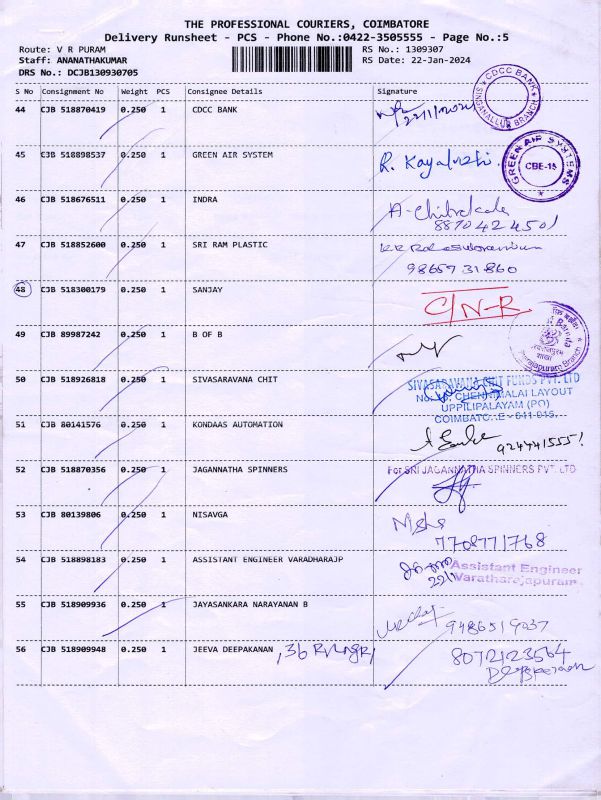 THE PROFESSIONAL COURIERS, COIMBATORE
Delivery Runsheet - PCS - Phone No.:0422-3505555 - Page No.:5
Route: V R PURAM
RS No.: 1309307
Staff: ANANATHAKUMAR
RS Date: 22-Jan-2024
DRS No.: DCJB130930705
S No Consignment No Weight PCS Consignee Details Signature
44 CJB 518870419 0.250 1 CDCC BANK
CDCC BANK
45 CJB 518898537 0.250 1 GREEN AIR SYSTEM
GREEN AIR SYSTEMS
CBE-15
46 CJB 518676511 0.250 1 INDRA A-Chitrakala
8870424501
47 CJB 518852600 0.250 1 SRI RAM PLASTIC
9865731860
48 CJB 518300179 0.250 1 SANJAY C/N-R
49 CJB 89987242 0.250 1 B OF B
50 CJB 518926818 0.250 1 SIVASARAVANA CHIT SIVASARAVANA CHIT FUNDS PVT. LTD
CHENNIMALAI LAYOUT
UPPILIPALAYAM (PO)
COIMBATORE - 641 015.
51 CJB 80141576 0.250 1 KONDAAS AUTOMATION
52 CJB 518870356 0.250 1 JAGANNATHA SPINNERS For SRI JAGANNATHA SPINNERS PVT. LTD
53 CJB 80139806 0.250 1 NISAVGA
7708771768
54 CJB 518898183 0.250 1 ASSISTANT ENGINEER VARADHARAJP Assistant Engineer
Varatharajapuram.
55 CJB 518909936 0.250 1 JAYASANKARA NARAYANAN B
9486519037
56 CJB 518909948 0.250 1 JEEVA DEEPAKANAN 8072123564